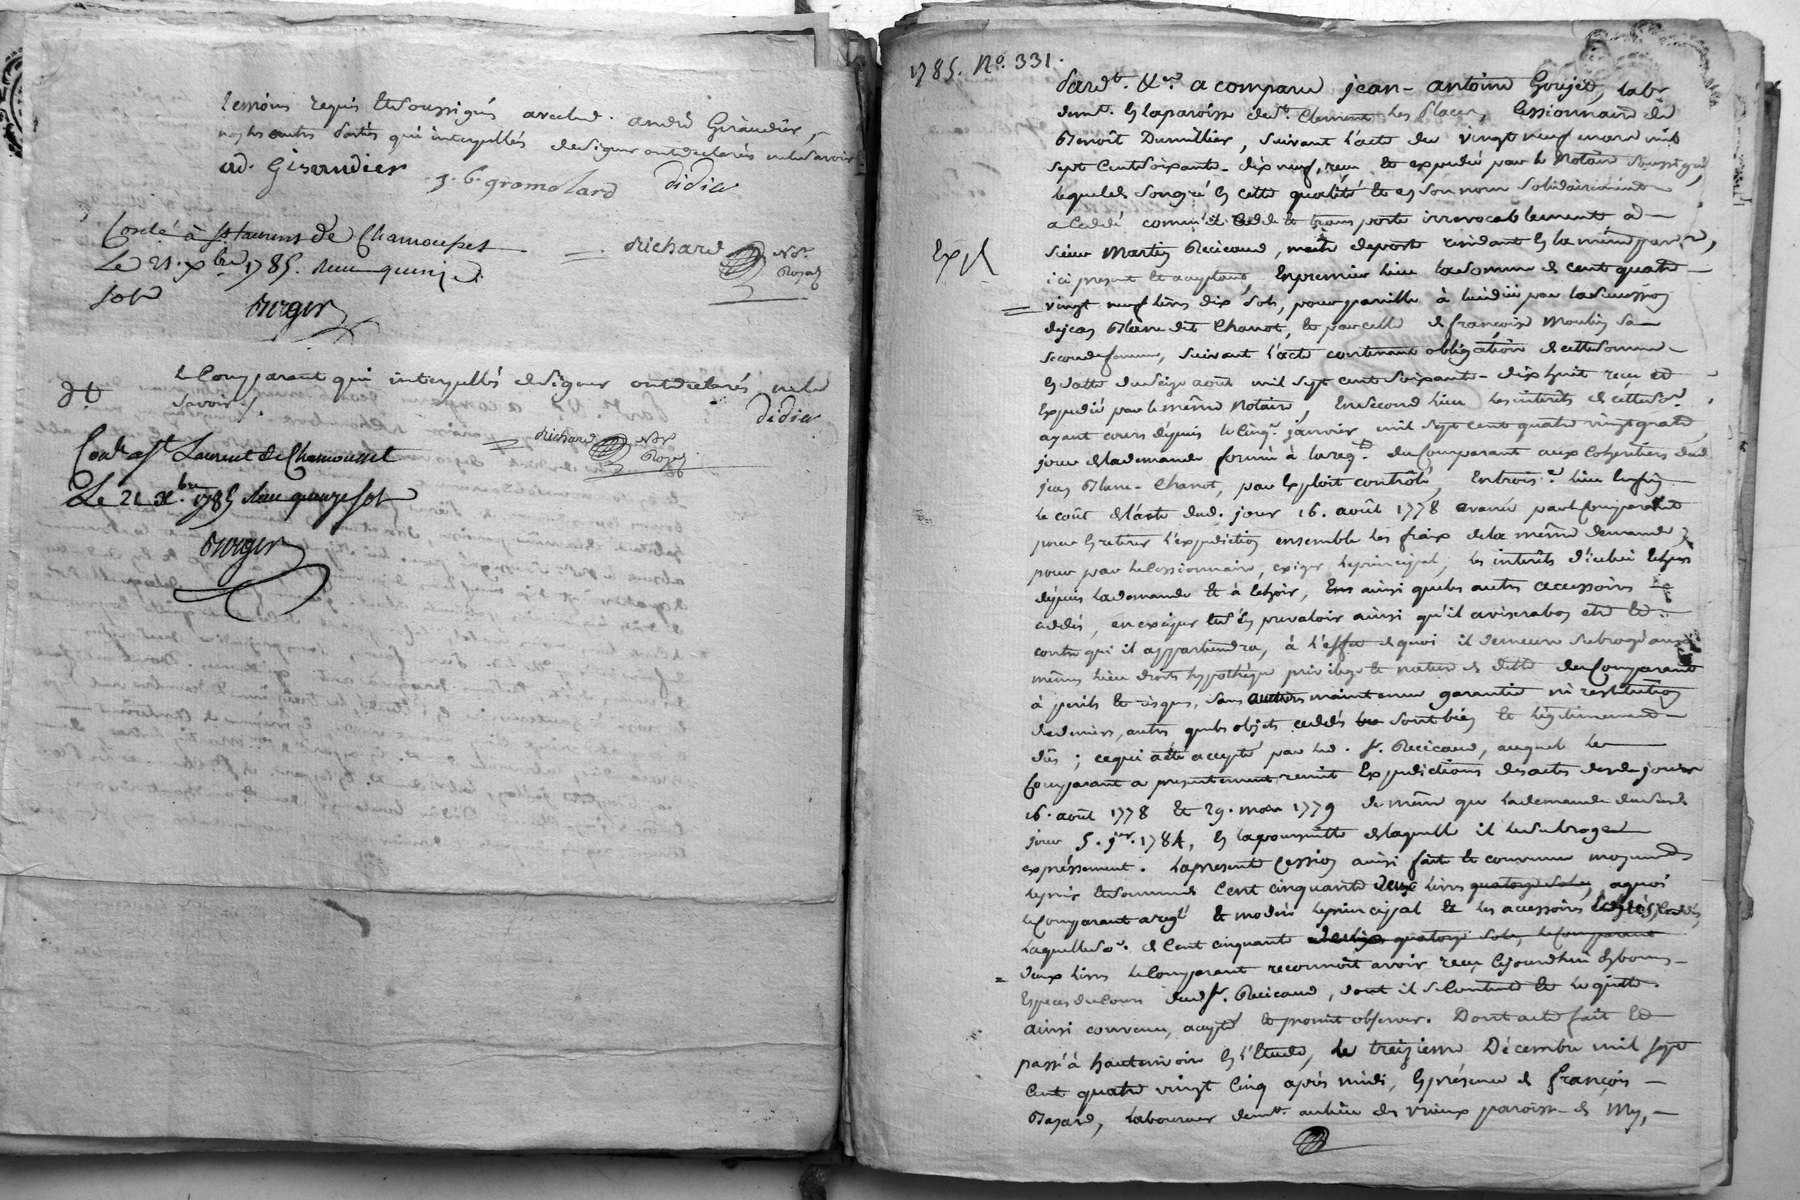 temoins requis et soussignés avec led. andré Giraudier,
non les autres parties qui interpellés de signer ont declarés ne le savoir
ad. Giraudier j. b. gromolard didier
Conté à st laurens de Chamousset
Le 21. xbre 1785. Reçu quinze
sols
Berger
Richard Nre.
Royal
le Comparant qui interpellés de signer ont declarés ne le
savoir.
didier
Richard Nre
Royal
Conté a st Laurent de Chamousset
Le 21 xbre. 1785 Reçu quinze sols
Berger
1785. No. 331.
Pard.t &.a a comparu jean-antoine Goujet, labr
demt. en la paroisse de st. Clement les places, Cessionnaire de
Benoît Dumillier, suivant l'acte du vingt neuf mars mil
sept Cent soixante-dix neuf, reçu et expedié par le Notaire soussigné,
lequel de son gré en cette qualité et en son nom solidairement
a Cedé comme il Cede et transporte irrevocablement a
sieur Martin Recicaud, maître de poste residant en la même paroisse,
ici present et acceptant, En premier lieu la somme de cent quatre
vingt neuf livres dix sols, pour pareille à lui düe par la succession
de jean Blanc dit Chanot, et par celle de françoise Moulin sa
seconde femme, suivant l'acte contenant obligation de cette somme
en datte du seize août mil sept cent soixante-dix huit reçu et
Expedié par le même Notaire, En second lieu les intérêts de cette so.e
ayant cours depuis le cinq.e janvier mil sept cent quatre vingt quatre,
jour de la demande formée à la req.te du Comparant aux Cohéritiers dud.
jean Blanc-Chanot, par Exploit contrôlé, En trois.e lieu Enfin
le coût de l'acte dud. jour 16. août 1778 avancé par le Comparant
pour en retirer l'expedition ensemble les fraix de la même demande;
pour par le Cessionnaire, exiger le principal, les intérêts d'icelui échus
depuis la demande et à Echoir, Ens ainsi que les autres accessoires
cedés, en exiger et s'en prevaloir ainsi qu'il avisera bon etre et
contre qui il appartiendra, à l'effet de quoi il demeure subrogé aux
mêmes lieu droits hypothéque privilege et nature de dette du Comparant
à perils et risques, sans autres maintenue garantie ni restitution
de deniers, autres que les objets cedés sont bien et légitimement
dûs; ce qui a été accepté par led. sr. Recicaud, auquel le
Comparant a presentement remis Expeditions des actes desd. jours
16. août 1778 et 29. mars 1779 de même que la demande dud.
jour 5. jer. 1784, en la poursuitte de laquelle il le subroge
expressement. La presente Cession ainsi faite et convenue moyennant
le prix et somme de Cent cinquante deux livres quatorze sols, a quoi
le Comparant a reglé et moderé le principal et les accessoires cedés,
laquelle so.e de Cent cinquante quatorze sols, le Comparant
deux livres le Comparant reconnoit avoir reçu ce jourd'hui en bonnes
Especes de Cours dud. sr. Recicaud, dont il se Contente et le quitte.
ainsi convenu, accepté et promit observer. Dont acte fait et
passé à hauterivoire en l'Etude, le treizieme Décembre mil sept
Cent quatre vingt Cinq après midi, En présence de françois
Bazard, laboureur demt. au lieu des vieux paroisse de My,